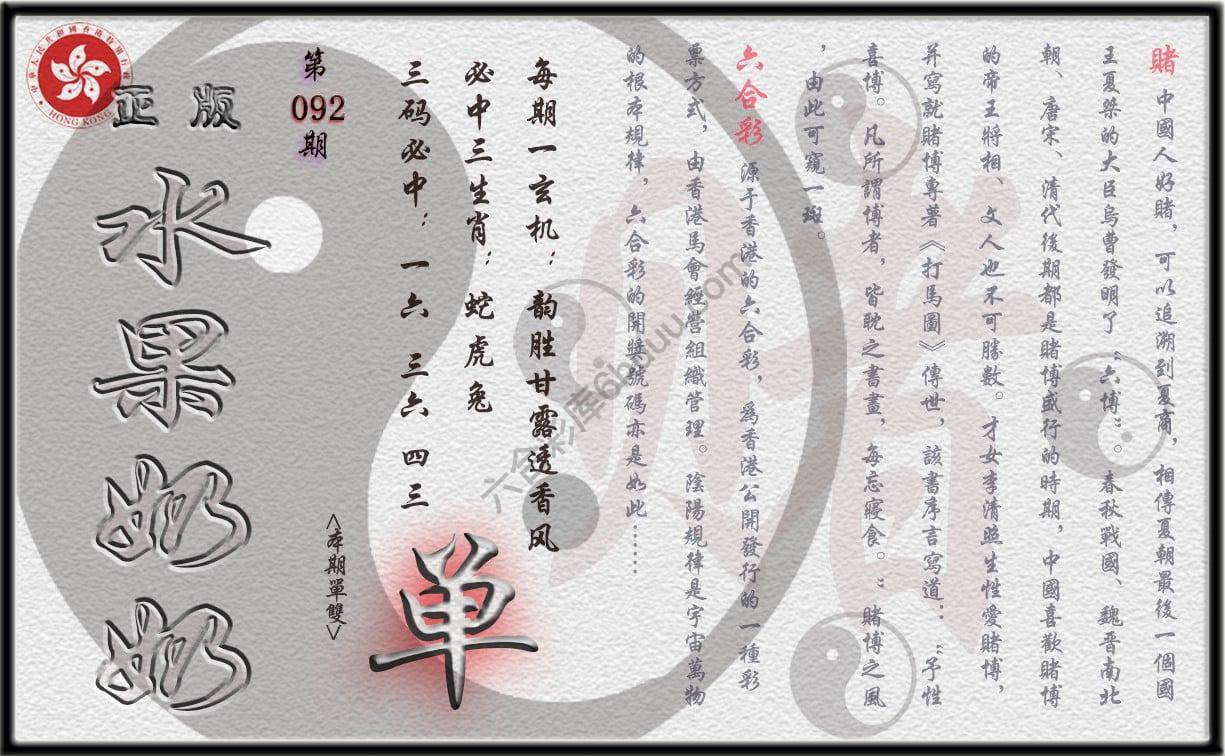 賭 中國人好賭，可以追溯到夏商，相傳夏朝最後一個國
王夏桀的大臣烏曹發明了“六博”。春秋戰國、魏晉南北
朝、唐宋、清代後期都是賭博盛行的時期，中國喜歡賭博
的帝王將相、文人也不可勝數。才女李清照生性愛賭博，
并寫就賭博專著《打馬圖》傳世，該書序言寫道：“予性
喜博。凡所謂博者，皆耽之書畫，每忘寢食。”賭博之風
，由此可窺一斑。
六合彩 源于香港的六合彩，爲香港公開發行的一種彩
票方式，由香港馬會經營組織管理。陰陽規律是宇宙萬物
的根本規律，六合彩的開獎號碼亦是如此……
每期一玄机：韵胜甘露透香风
必中三生肖：蛇虎兔
三码必中：一六 三六 四三
单
第
092
期
<本期單雙>
正版
水果奶奶
中華人民共和國香港特別行政區
HONG KONG
六合彩库6huuu.com